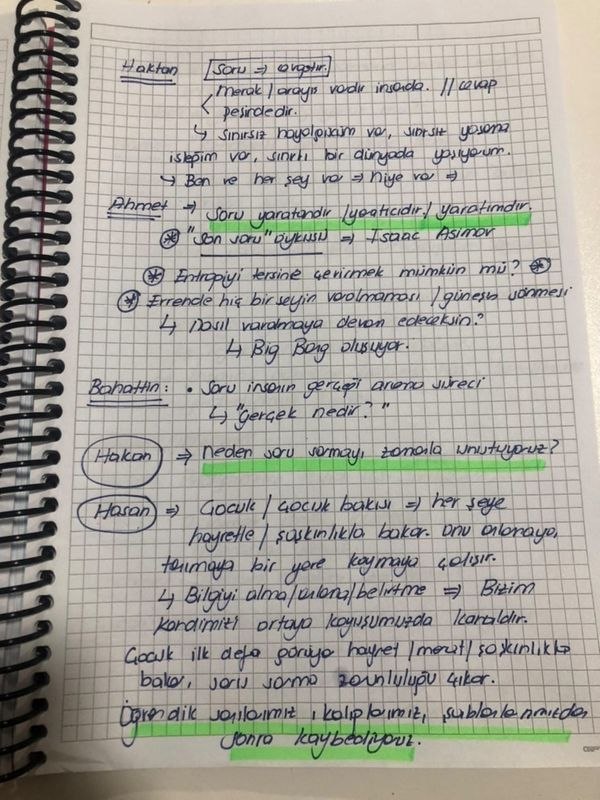 Haktan [Soru => cevaptır.]
< Merak / arayış vardır insanda. // cevap
peşindedir.
↳ Sınırsız hayalgücüm var, sınırsız yaşama
isteğim var, sınırlı bir dünyada yaşıyorum.
↳ Ben ve her şey var => Niye var =>
Ahmet => Soru yaratandır / yaratıcıdır / yaratımdır.
* "Son soru" öyküsü => Isaac Asimov
* Entropiyi tersine çevirmek mümkün mü? *
* Evrende hiç bir şeyin varolmaması / güneşin sönmesi
↳ Nasıl varolmaya devam edeceksin?
↳ Big Bang oluşuyor.
Bahattin: • Soru insanın gerçeği arama süreci
↳ "gerçek nedir?"
Hakan => Neden soru sormayı zamanla unutuyoruz?
Hasan => Çocuk / Çocuk bakışı => her şeye
hayretle / şaşkınlıkla bakar. Onu anlamaya,
tanımaya bir yere koymaya çalışır.
↳ Bilgiyi alma / anlama / belirtme => Bizim
kendimizi ortaya koyuşumuzda kanaldır.
Çocuk ilk defa görüyor hayret / merak / şaşkınlıkla
bakar, soru sorma zorunluluğu çıkar.
Öğrendik sanılarımız, kalıplarımız, şablonlarımızdan
sonra kaybediyoruz.